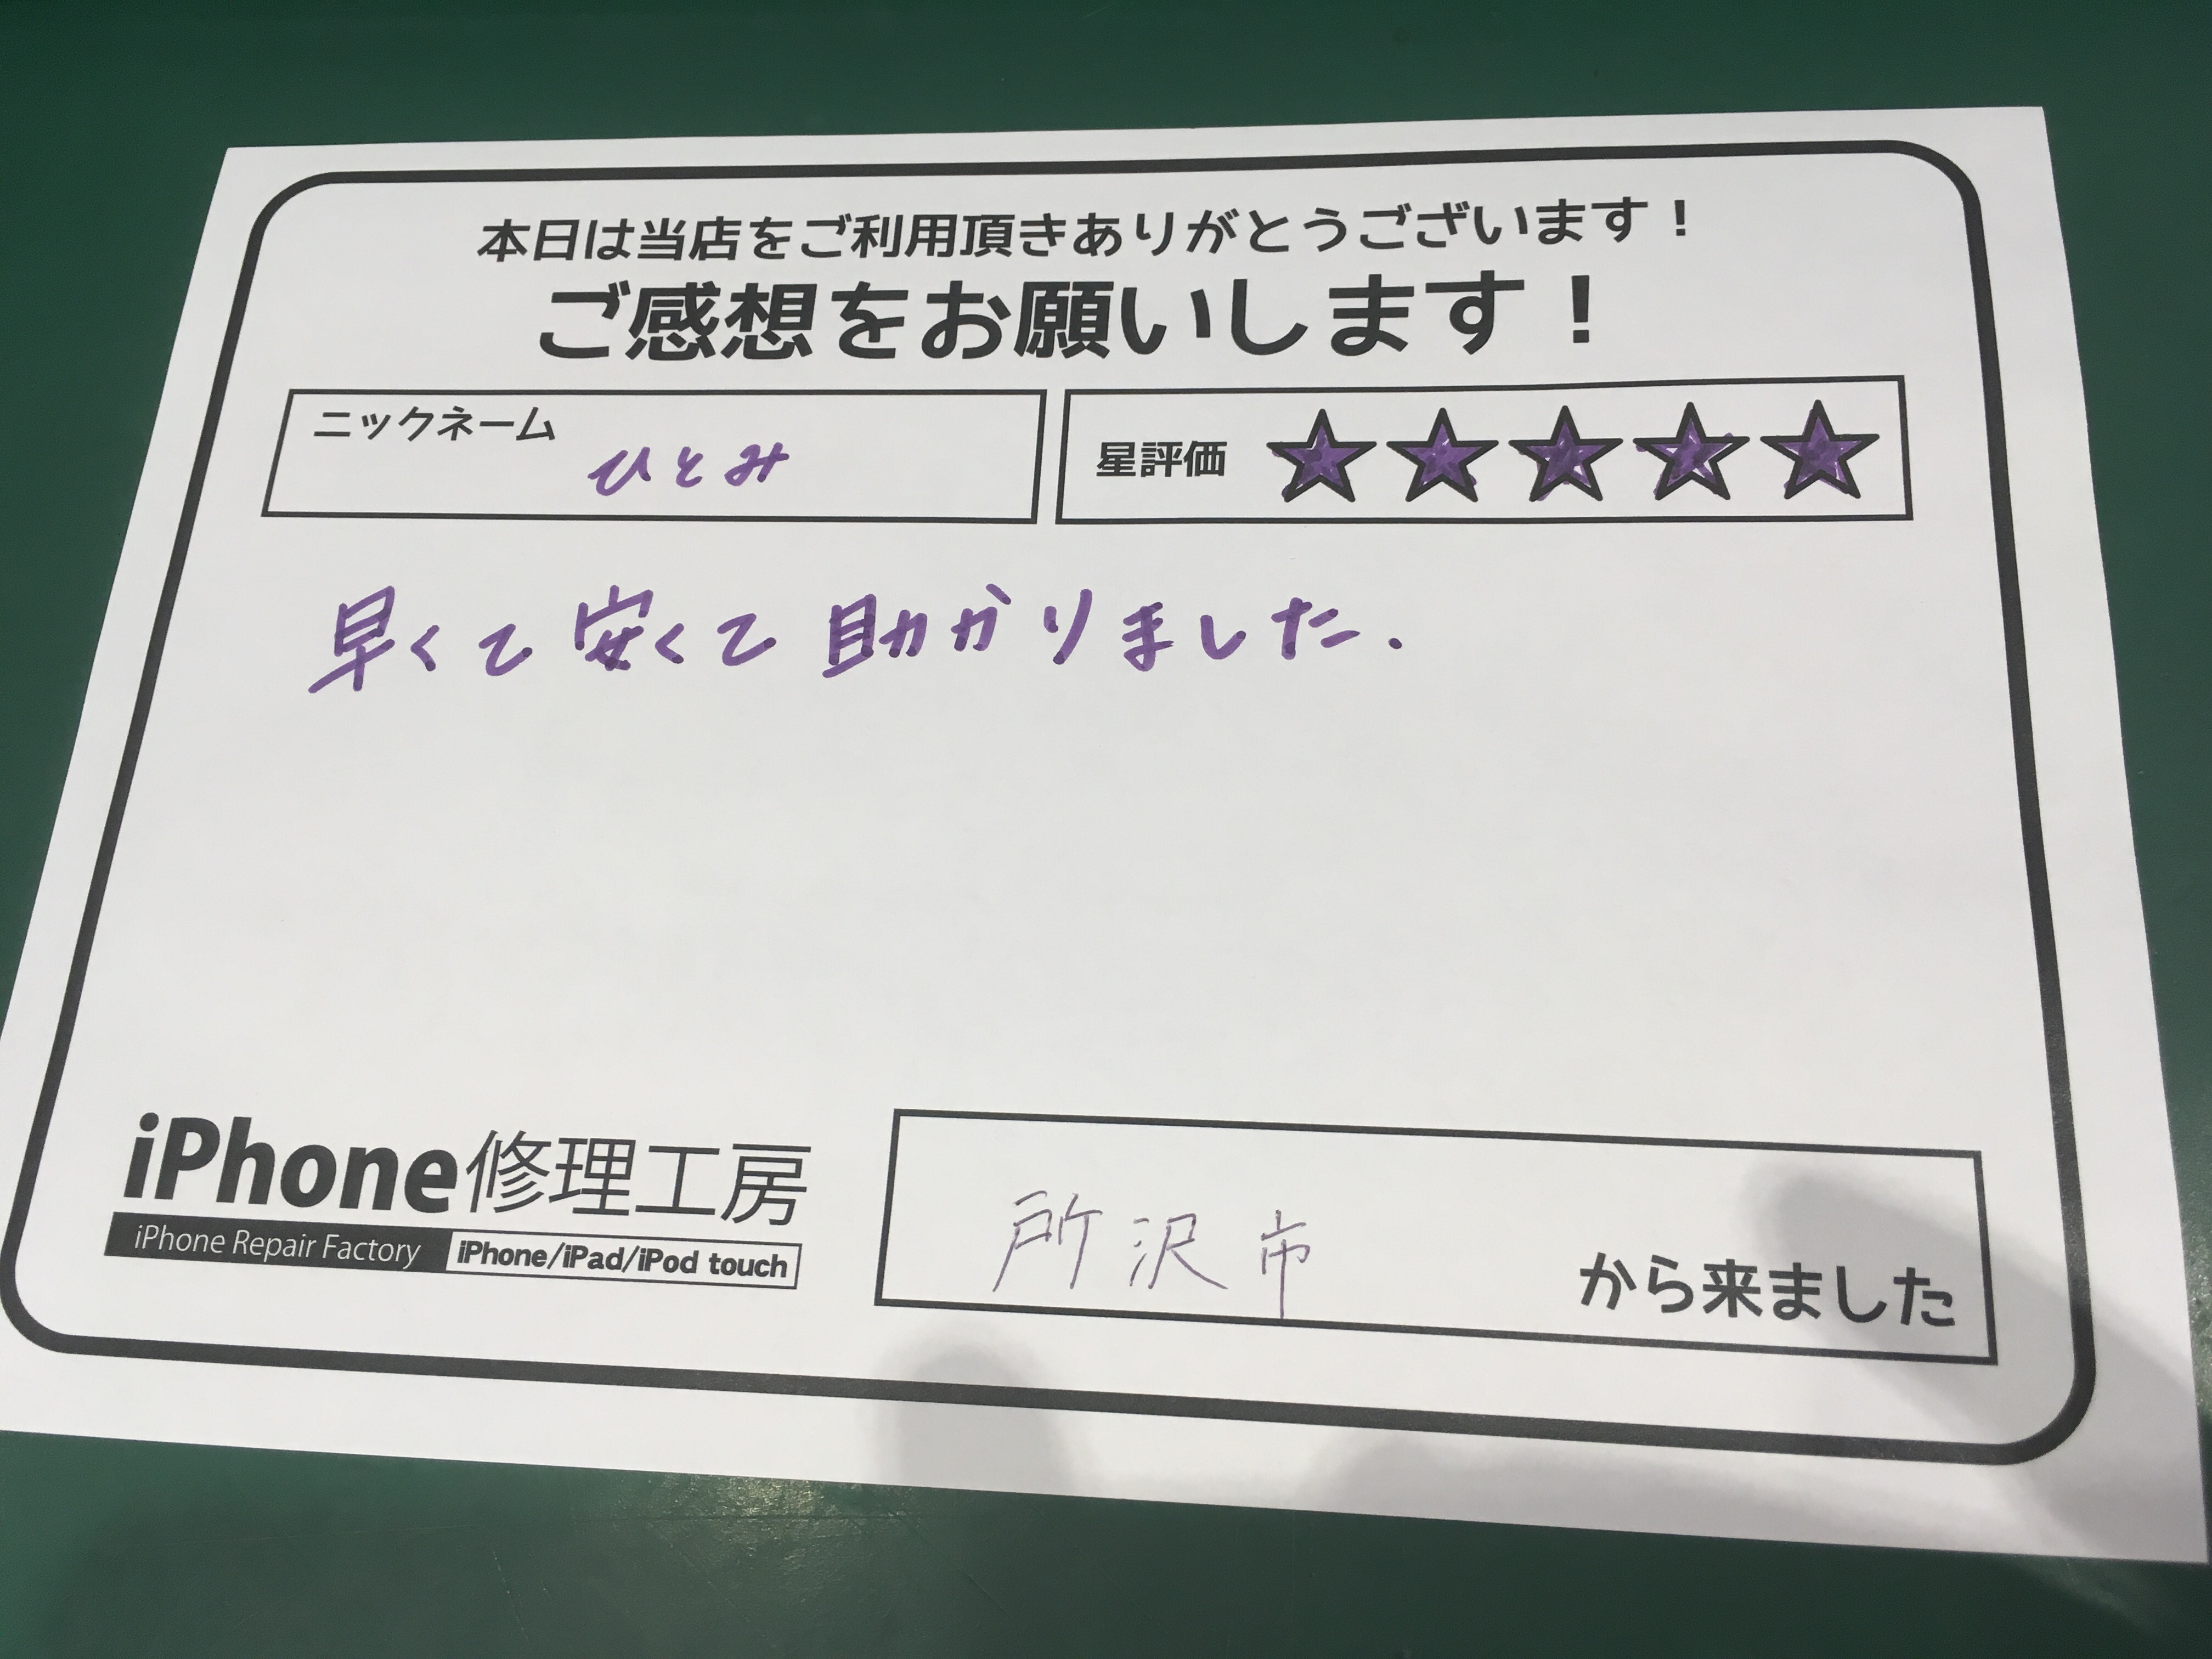 本日は当店をご利用頂きありがとうございます！
ご感想をお願いします！
ニックネーム ひとみ
星評価 ★★★★★
早くて安くて助かりました.
iPhone修理工房
iPhone Repair Factory iPhone/iPad/iPod touch
所沢市 から来ました